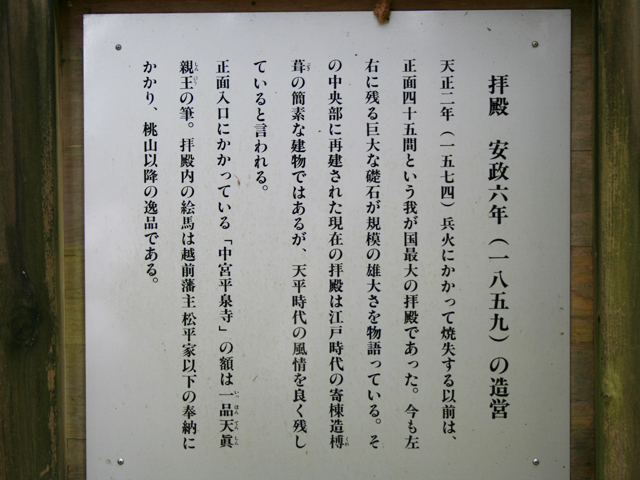 拝殿　安政六年（一八五九）の造営
天正二年（一五七四）兵火にかかって焼失する以前は、
正面四十五間という我が国最大の拝殿であった。今も左
右に残る巨大な礎石が規模の雄大さを物語っている。そ
の中央部に再建された現在の拝殿は江戸時代の寄棟造榑
葺の簡素な建物ではあるが、天平時代の風情を良く残し
ていると言われる。
正面入口にかかっている「中宮平泉寺」の額は一品天眞
親王の筆。拝殿内の絵馬は越前藩主松平家以下の奉納に
かかり、桃山以降の逸品である。